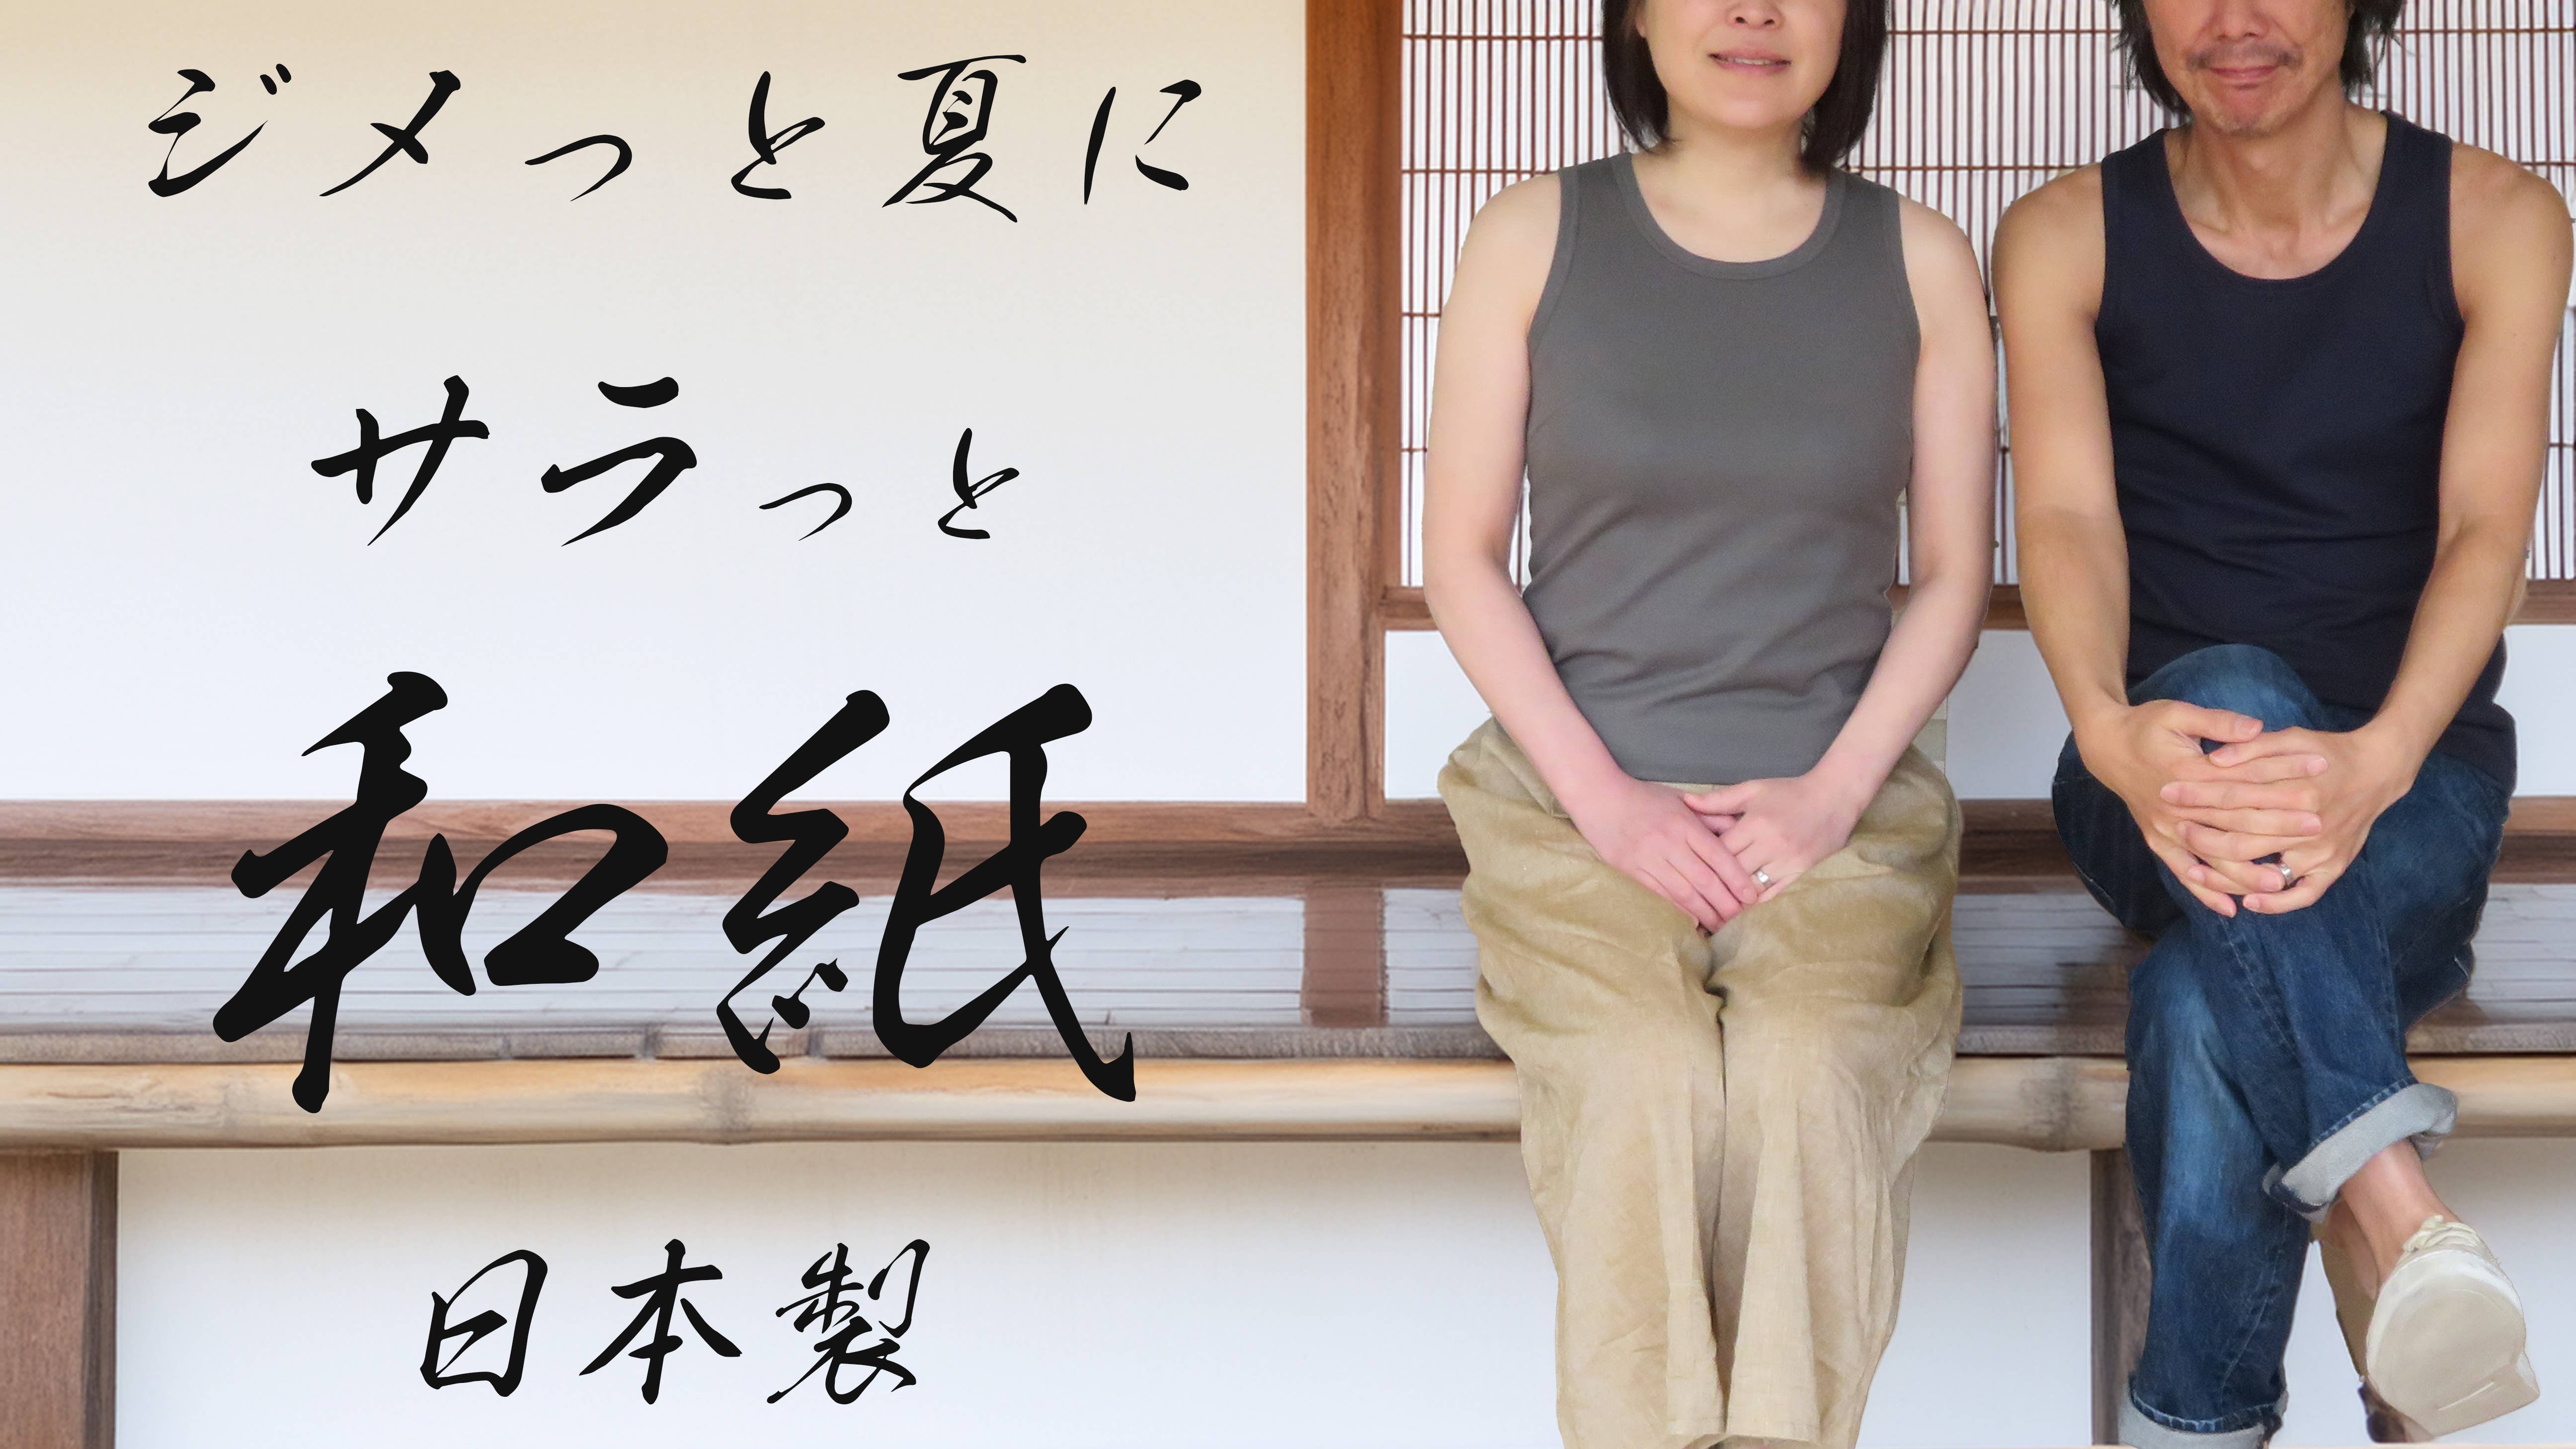 ジメっと夏に
サラっと
和紙
日本製